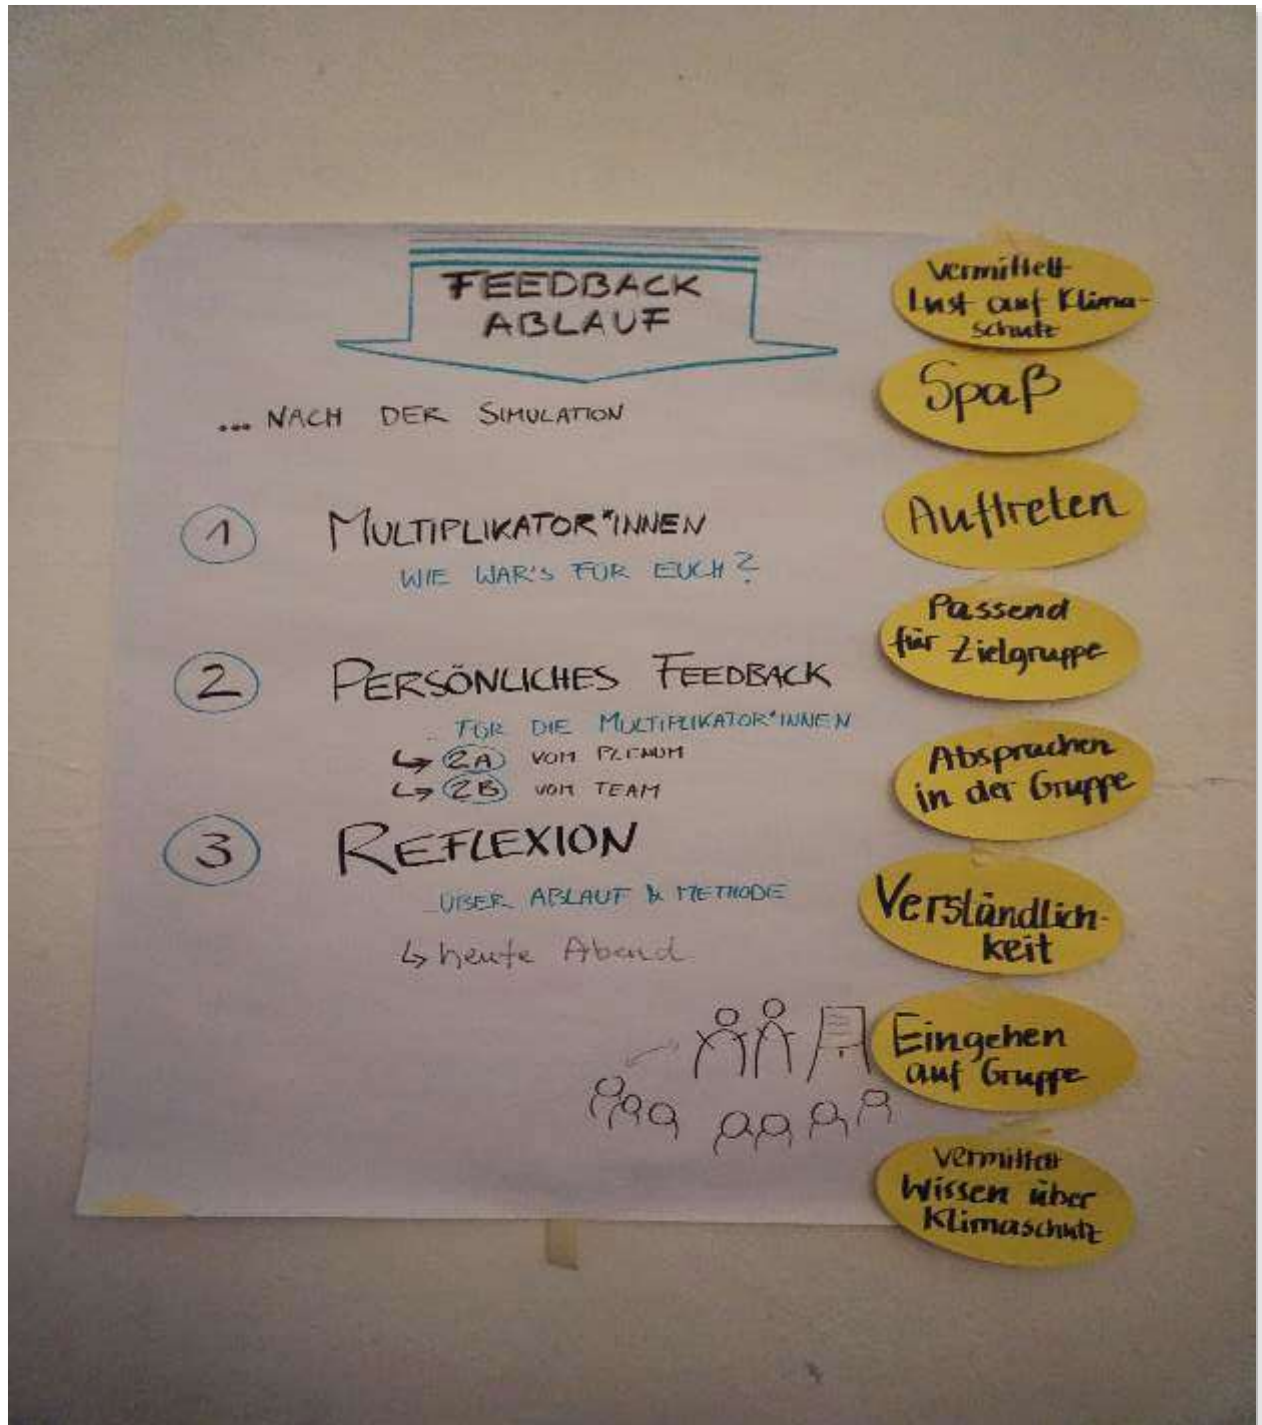 FEEDBACK
ABLAUF
... NACH DER SIMULATION
1 MULTIPLIKATOR*INNEN
WIE WAR'S FÜR EUCH?
2 PERSÖNLICHES FEEDBACK
... FÜR DIE MULTIPLIKATOR*INNEN
↳ 2A VOM PLENUM
↳ 2B VOM TEAM
3 REFLEXION
...ÜBER ABLAUF & METHODE
↳ heute Abend
Vermittelt
Lust auf Klima-
schutz
Spaß
Auftreten
Passend
für Zielgruppe
Absprachen
in der Gruppe
Verständlich-
keit
Eingehen
auf Gruppe
Vermittelt
Wissen über
Klimaschutz